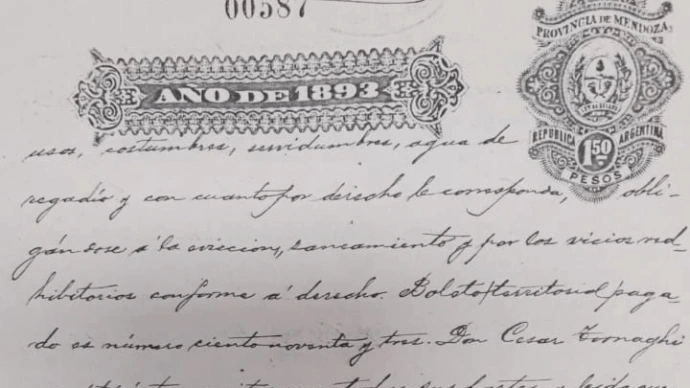 00587
PROVINCIA DE MENDOZA
AÑO DE 1893
REPUBLICA ARGENTINA
1.50
PESOS
usos, costumbres, servidumbres, agua de
regadío y con cuanto por derecho le corresponda, obli-
gándose á la eviccion, saneamiento y por los vicios red-
hibitorios conforme á derecho. Boleto territorial paga-
do es número ciento noventa y tres. Don Cesar Tornaghi